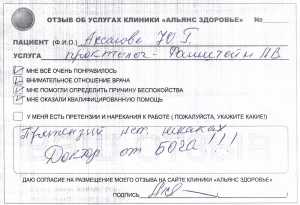 ОТЗЫВ ОБ УСЛУГАХ КЛИНИКИ «АЛЬЯНС ЗДОРОВЬЕ» №
ПАЦИЕНТ (Ф.И.О.) Аксанова Ю.Г.
УСЛУГА проктолог -
МНЕ ВСЁ ОЧЕНЬ ПОНРАВИЛОСЬ
ВНИМАТЕЛЬНОЕ ОТНОШЕНИЕ ВРАЧА
МНЕ ПОМОГЛИ ОПРЕДЕЛИТЬ ПРИЧИНУ БЕСПОКОЙСТВА
МНЕ ОКАЗАЛИ КВАЛИФИЦИРОВАННУЮ ПОМОЩЬ
У МЕНЯ ЕСТЬ ПРЕТЕНЗИИ И НАРЕКАНИЯ К РАБОТЕ ( ПОЖАЛУЙСТА, УКАЖИТЕ КАКИЕ!)
Претензий нет никаких
Доктор от БОГА!!!
ДАЮ СОГЛАСИЕ НА РАЗМЕЩЕНИЕ МОЕГО ОТЗЫВА НА САЙТЕ КЛИНИКИ «АЛЬЯНС ЗДОРОВЬЕ»
ПОДПИСЬ